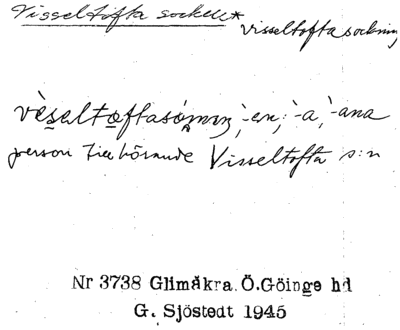 Visseltofta socken*
visseltofta sockning
vèseltoftasóning, -en, -a, -ana
person tillhörande Visseltofta s:n
Nr 3738 Glimåkra. Ö.Göinge hd
G. Sjöstedt 1945